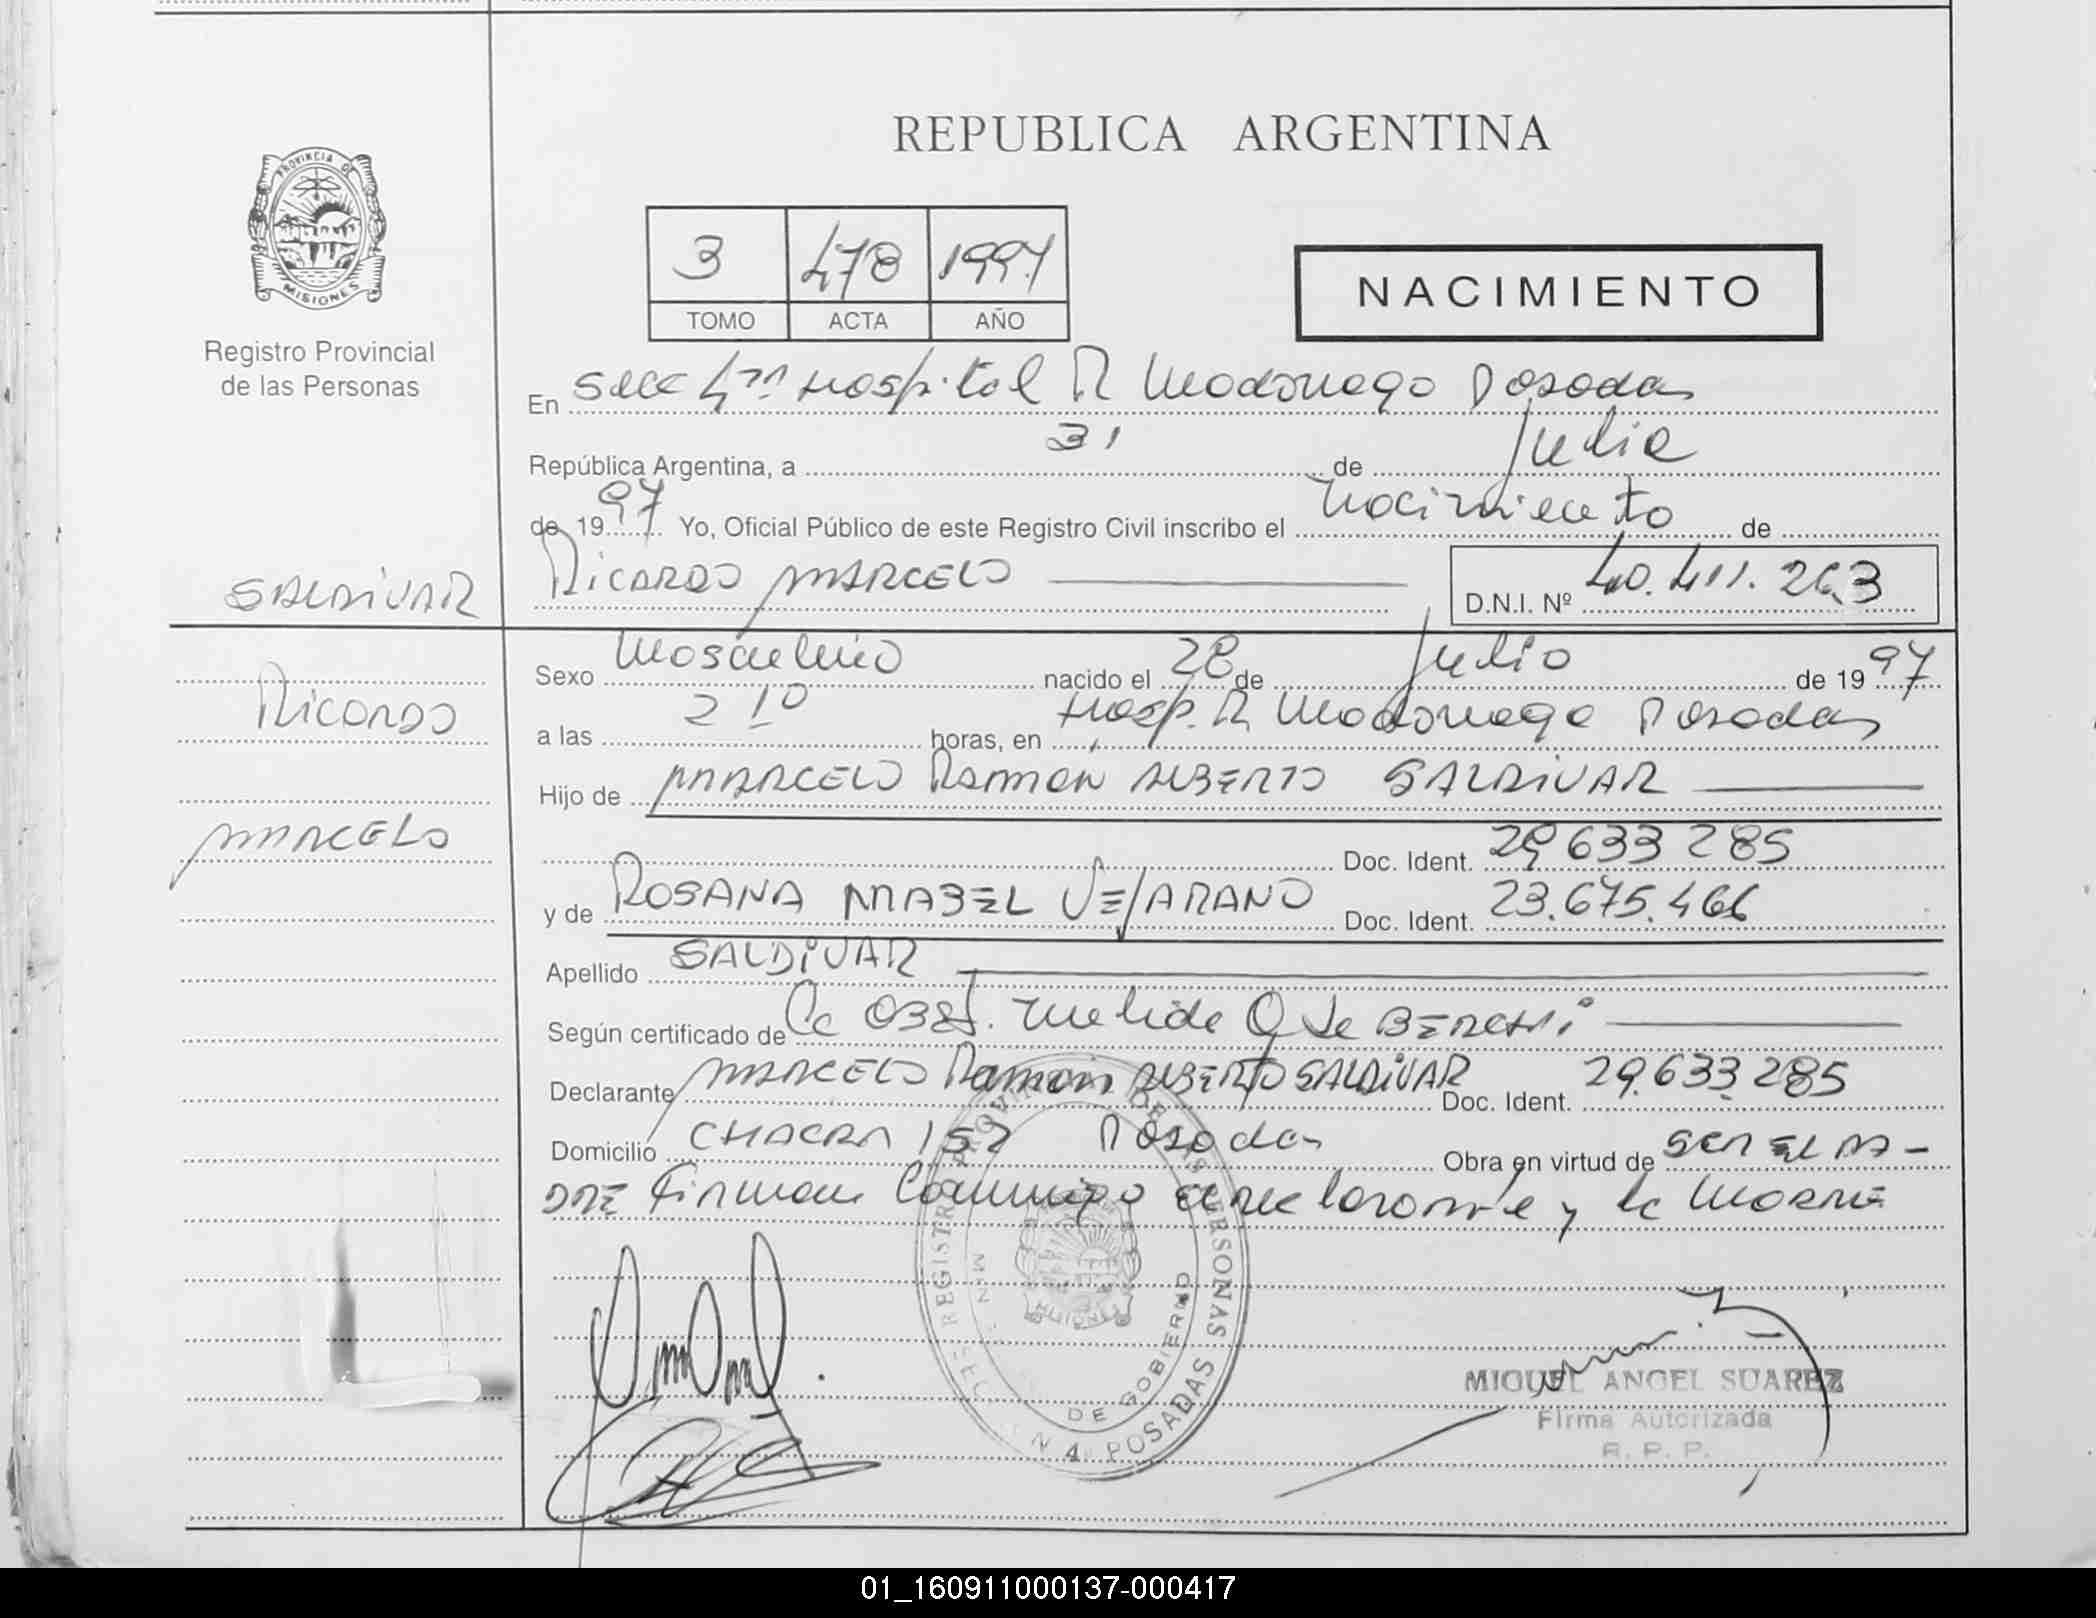 REPUBLICA ARGENTINA
PROVINCIA DE
MISIONES
Registro Provincial
de las Personas
3 478 1997
TOMO ACTA AÑO
NACIMIENTO
En Secc 4ta Hospital R Madariaga Posadas
República Argentina, a 31 de Julio
de 1997 Yo, Oficial Público de este Registro Civil inscribo el nacimiento de
SALDIVAR
Ricardo MARCELO
D.N.I. Nº 40.411.263
Ricardo
MARCELO
Sexo Masculino nacido el 28 de Julio de 1997
a las 2 10 horas, en Hosp. R Madariaga Posadas
Hijo de MARCELO Ramón ALBERTO SALDIVAR
Doc. Ident. 29 633 285
y de ROSANA MABEL VEJARANO Doc. Ident. 23.675.466
Apellido SALDIVAR
Según certificado de la Obst.
Declarante MARCELO Ramón ALBERTO SALDIVAR Doc. Ident. 29.633.285
Domicilio CHACRA 152 Posadas Obra en virtud de SER EL PA-
DRE Firman Conmigo declarante y la MADRE
REGISTRO PROVINCIAL DE LAS PERSONAS
DE GOBIERNO
MISIONES
4 POSADAS
MIGUEL ANGEL SUAREZ
Firma Autorizada
R. P. P.
01_160911000137-000417